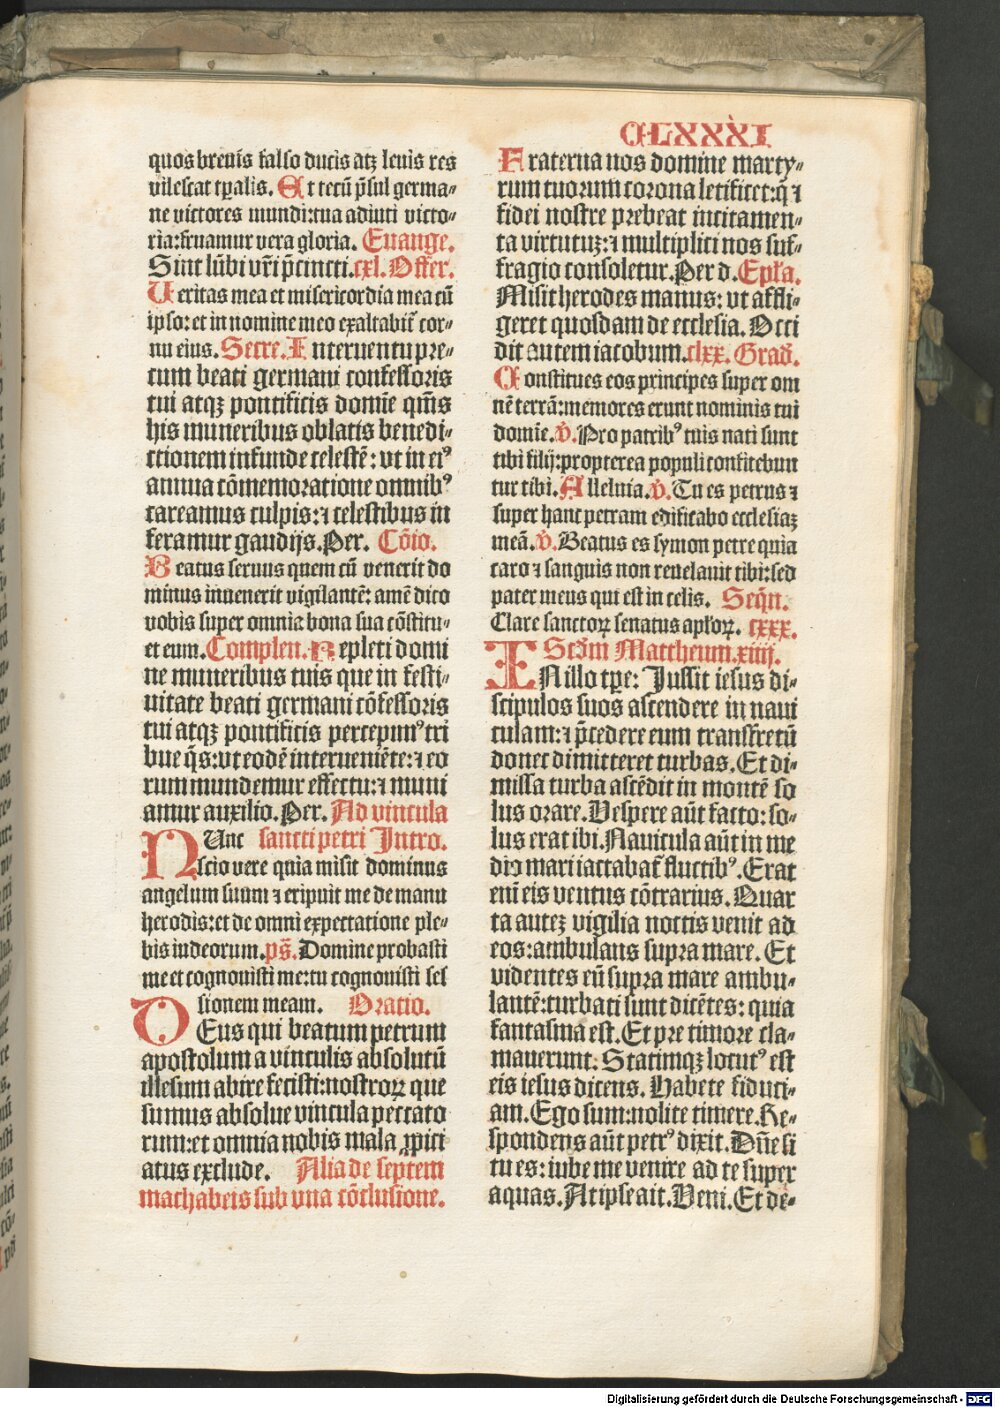 CLXXXI
quos breuis falso ducis atqꝫ leuis res
vilescat tꝑalis. Et tecū p̄sul germa⸗
ne victores mundi:tua adiuti victo⸗
ria:fruamur vera gloria. Euange.
Sint lūbi vr̄i p̄cincti.cxl. Offer.
Ueritas mea et misericordia mea cū
ipso:et in nomine meo exaltabit̄ cor⸗
nu eius. Secre. Interuentu pre⸗
cum beati germani confessoris
tui atqꝫ pontificis domīe qm̄s
his muneribus oblatis benedi⸗
ctionem infunde celestē: vt in eiꝰ
annua cōmemoratione omnibꝰ
careamus culpis:⁊ celestibus in
feramur gaudijs. Per. Cōio.
Beatus seruus quem cū venerit do
minus inuenerit vigilantē: amē dico
vobis super omnia bona sua cōstitu⸗
et eum. Complen. Repleti domi
ne muneribus tuis que in festi⸗
uitate beati germani cōfessoris
tui atqꝫ pontificis percepimꝰ tri
bue q̄s:vt eodē interueniēte:⁊ eo
rum mundemur effectu:⁊ muni
amur auxilio. Per. Ad vincula
NUnc sancti petri Intro.
scio vere quia misit dominus
angelum suum ⁊ eripuit me de manu
herodis:et de omni expectatione ple⸗
bis iudeorum. ps̄. Domine probasti
me et cognouisti me:tu cognouisti ses
sionem meam. Oratio.
DEus qui beatum petrum
apostolum a vinculis absolutū
illesum abire fecisti:nostroꝝ que
sumus absolue vincula peccato
rum:et omnia nobis mala ꝓpici
atus exclude. Alia de septem
machabeis sub vna cōclusione.
Fraterna nos domine marty⸗
rum tuorum corona letificet:q̄ ⁊
fidei nostre prebeat incitamen⸗
ta virtutuꝫ:⁊ multiplici nos suf⸗
fragio consoletur. Per d. Ep̄ła.
Misit herodes manus: vt affli⸗
geret quosdam de ecclesia. Occi
dit autem iacobum.clxx. Grad̄.
Constitues eos principes super om
nē terrā:memores erunt nominis tui
domīe. v̄. Pro patribꝰ tuis nati sunt
tibi filij:propterea populi confitebun
tur tibi. Alleluia. v̄. Tu es petrus ⁊
super hanc petram edificabo ecclesiaꝫ
meā. v̄. Beatus es symon petre quia
caro ⁊ sanguis non reuelauit tibi:sed
pater meus qui est in celis. Seqn̄.
Clare sanctoꝝ senatus apłoꝝ. cxxx.
Scd̄m Mattheum.xiiij.
IN illo tꝑe: Jussit iesus di⸗
scipulos suos ascendere in naui
culam:⁊ p̄cedere eum transfretū
donec dimitteret turbas. Et di⸗
missa turba ascēdit in montē so
lus orare. Vespere aūt facto: so⸗
lus erat ibi. Nauicula aūt in me
dio mari iactabat̄ fluctibꝰ. Erat
enī eis ventus cōtrarius. Quar
ta auteꝫ vigilia noctis venit ad
eos:ambulans supra mare. Et
videntes eū supra mare ambu⸗
lantē:turbati sunt dicētes: quia
fantasma est. Et pre timore cla⸗
mauerunt: Statimqꝫ locutꝰ est
eis iesus dicens. Habete fiduci⸗
am. Ego sum:nolite timere. Re⸗
spondens aūt petrꝰ dixit. Dn̄e si
tu es: iube me venire ad te super
aquas. At ipse ait. Veni. Et de⸗
Digitalisierung gefördert durch die Deutsche Forschungsgemeinschaft - DFG